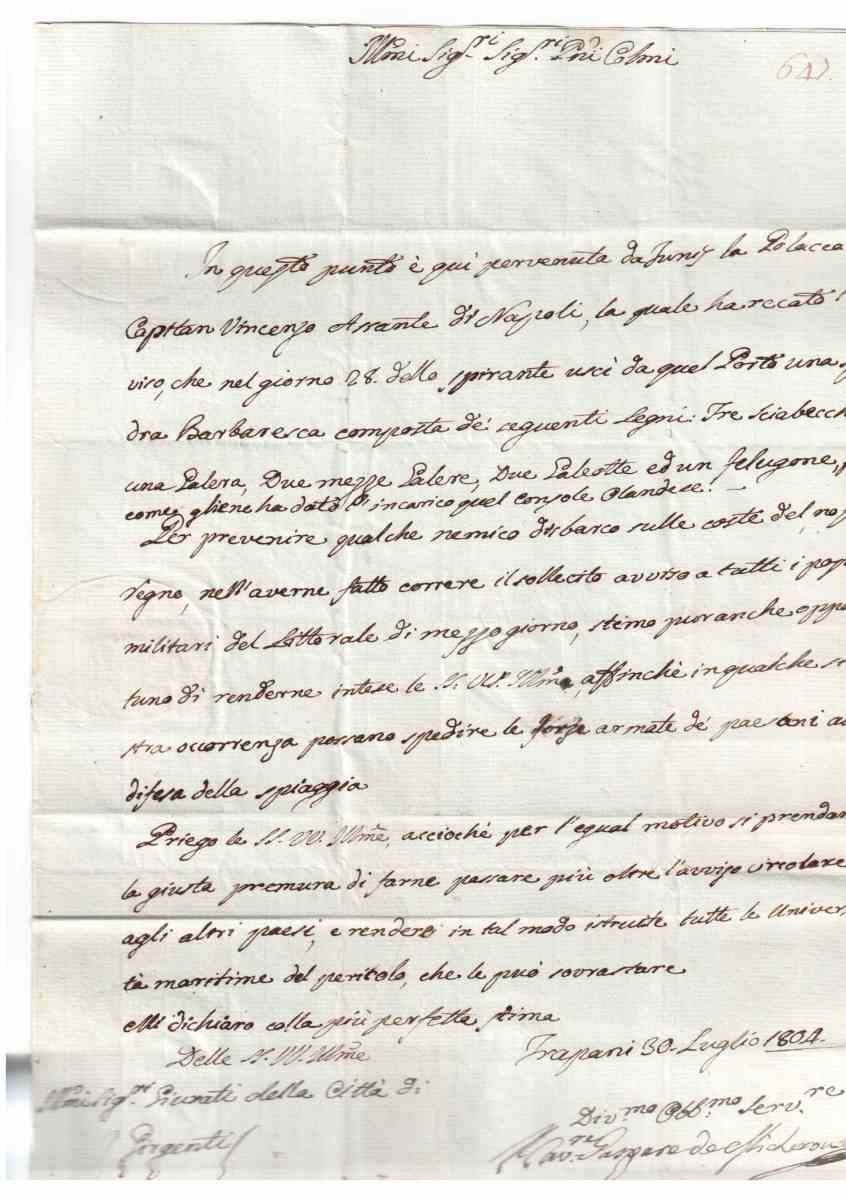 Illmi Sig.ri Sig.ri Pñi Colmi
641.
In questo punto è qui pervenuta da Tunis la Polacca
Capitan Vincenzo Assante di Napoli, la quale ha recato l
viso, che nel giorno 28. dello spirante uscì da quel Porto una s
dra Barbaresca composta de' seguenti Legni: Tre Sciabecch
una Galera, Due mezze Galere, Due Galeotte ed un felugone,
come gliene ha dato l'incarico quel console Olandese. –
Per prevenire qualche nemico disbarco sulle coste del nos
regno, nell'averne fatto correre il sollecito avviso a tutti i pos
militari del Littorale di mezzo giorno, stimo pur anche oppor
tuno di renderne intese le SS. VV. Illme, affinchè in qualche si
stra occorrenza possano spedire le forze armate de' paesani a
difesa della spiaggia
Priego le SS. VV. Illme, acciochè per l'egual motivo si prendan
la giusta premura di farne passare più oltre l'avviso circolare
agli altri paesi, e rendere in tal modo istruite tutte le Univer
tà maritime del pericolo, che le può sovrastare
e Mi dichiaro colla più perfetta stima
Delle SS. VV. Illme
Trapani 30. Luglio 1804.
Illmi Sig.ri Giurati della Città di
Girgenti
Div.mo Obb.mo Serv.re
Cav.re Gaspare de